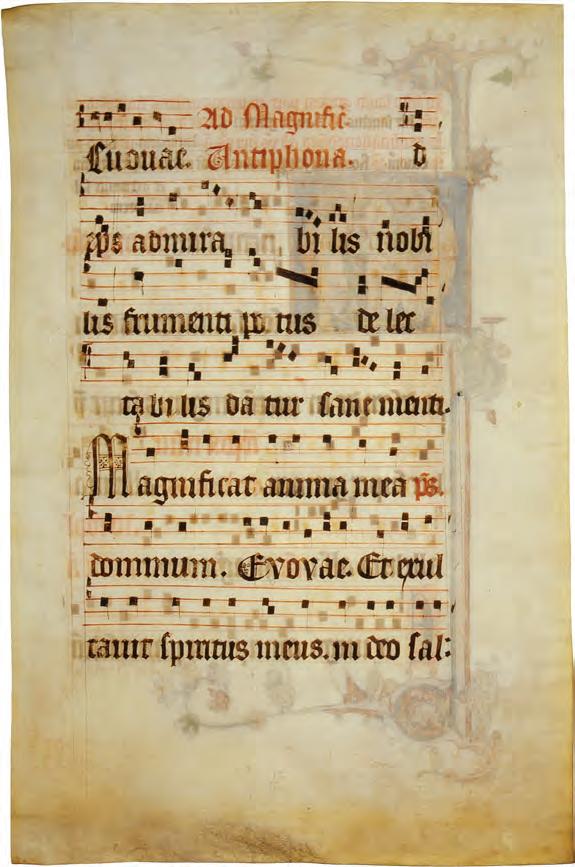 Ad Magnific.
Euouae. Antiphona.
admira bi lis nobi
lis frumenti po tus de lec
ta bi lis da tur sane menti.
Magnificat anima mea ps.
dominum. Evovae. Et exul
tauit spiritus meus. in deo sal: